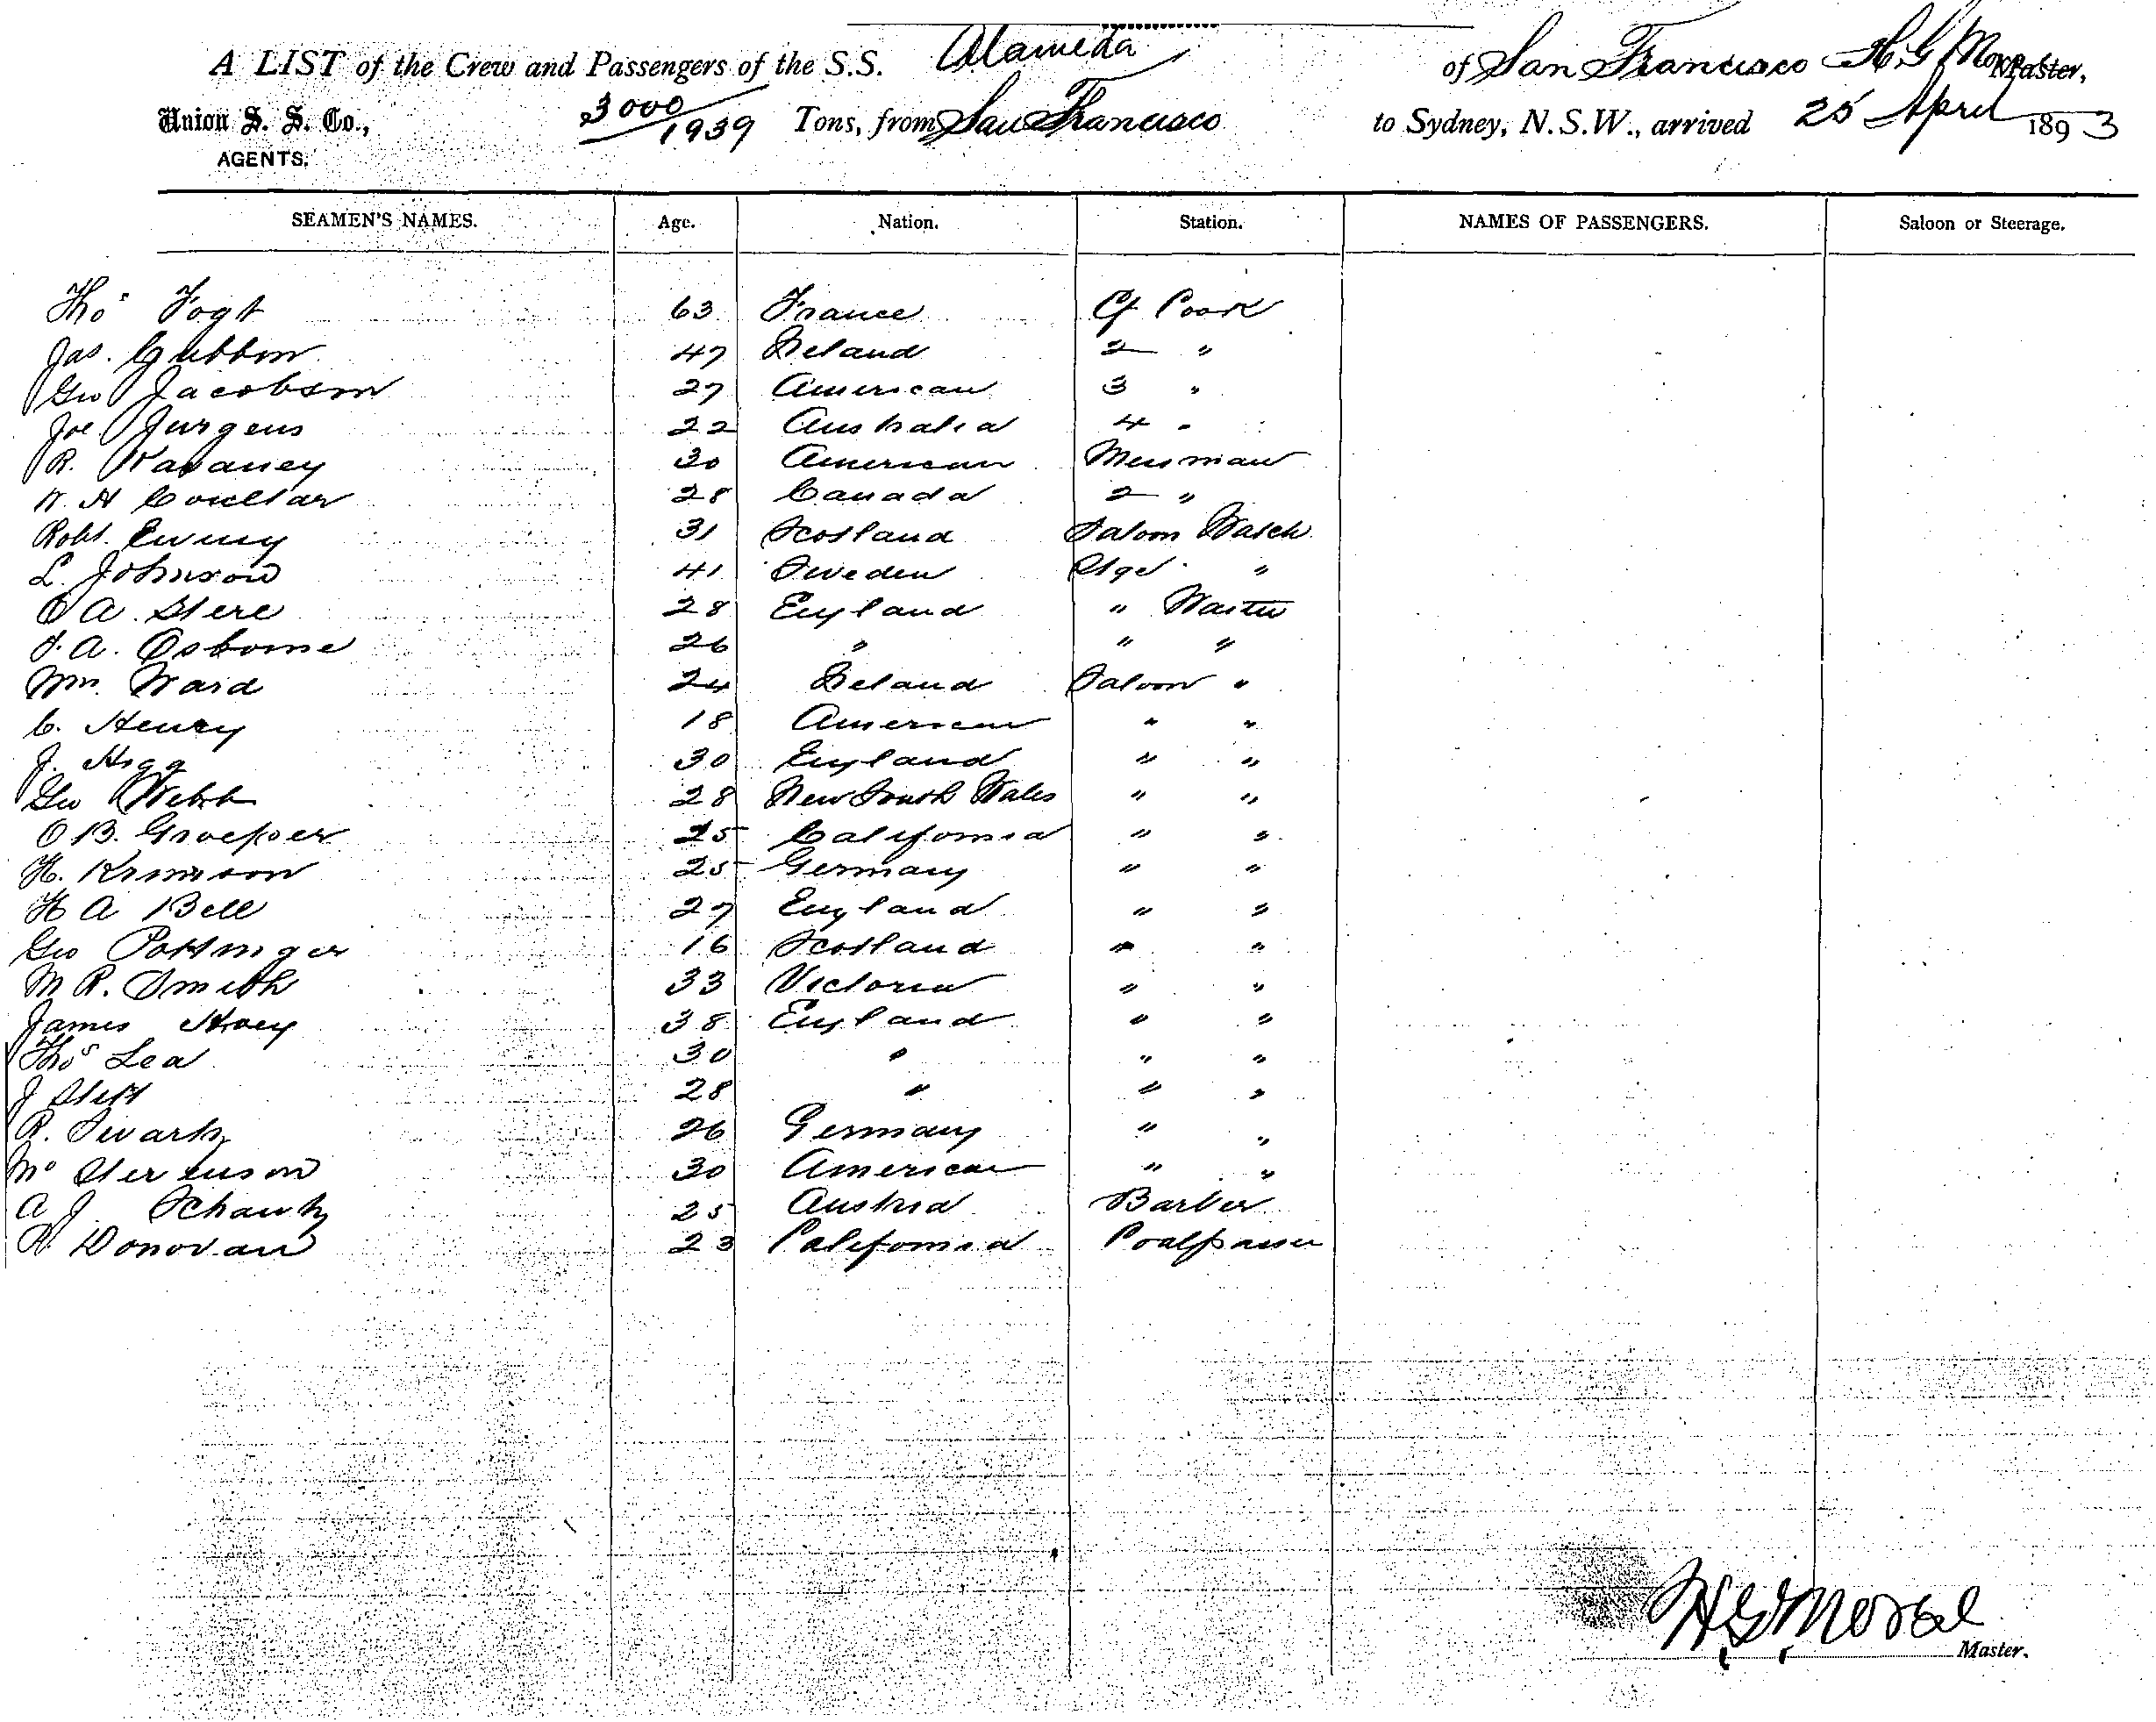 A LIST of the Crew and Passengers of the S.S. Alameda of San Francisco H. G. Morse Master,
Union S. S. Co., 3000/1939 Tons, from San Francisco to Sydney, N.S.W., arrived 25 April 1893
AGENTS.
SEAMEN'S NAMES. Age. Nation. Station. NAMES OF PASSENGERS. Saloon or Steerage.
Thos Vogt 63 France Cf Cook
Jas. Gubbin 47 Ireland 2 "
Geo Jacobson 27 American 3 "
Joe Jurgens 22 Australia 4 "
R. Kavaney 30 American Messman
H Coultar 28 Canada 2 "
Robt. Ewing 31 Scotland Saloon Watch
L. Johnson 41 Sweden Stge "
A. Stere 28 England " Waiter
A. Osborne 26 " " "
Wm. Ward 24 Ireland Saloon "
C. Henry 18 American " "
J. Hogg 30 England " "
Geo Webb 28 New South Wales " "
O B. Groeper 25 California " "
H. 25 Germany " "
H A Bell 27 England " "
Geo Pottinger 16 Scotland " "
M R. Smith 33 Victoria " "
James Hoey 38 England " "
Thos Lea 30 " " "
J 28 " " "
R. Swartz 26 Germany " "
30 American " "
A J Schantz 25 Austria Barber
R. Donovan 23 California Coalpasser
H G Morse
Master.